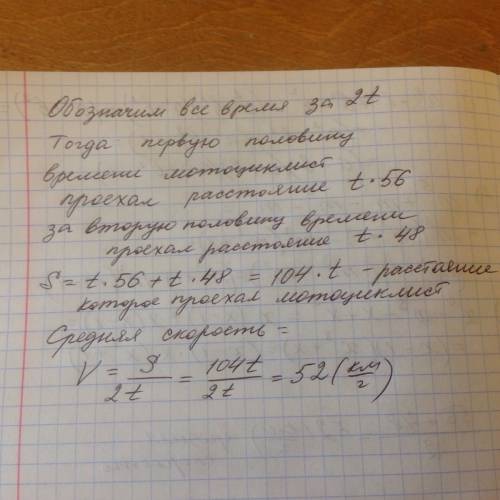 Обозначим все время за 2t
Тогда первую половину
времени мотоциклист
проехал расстояние t·56
за вторую половину времени
проехал расстояние t·48
S = t·56 + t·48 = 104·t - расстаяние
которое проехал мотоциклист
Средняя скорость =
V = S/2t = 104t/2t = 52 (км/г)